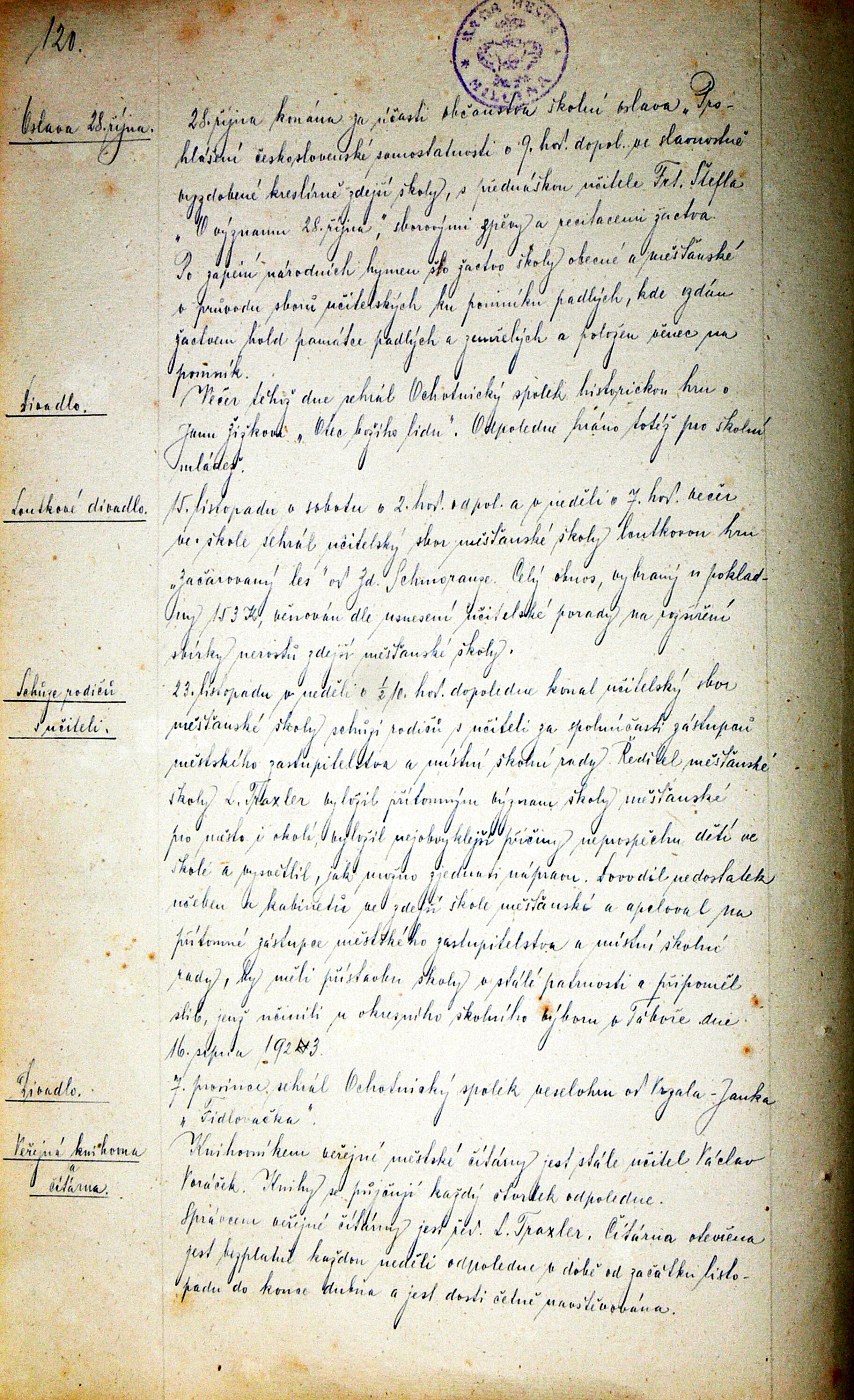 120.
Oslava 28. října.
28. října konána za účasti občanstva školní oslava „Pro-
hlášení československé samostatnosti o 9. hod. dopol. ve slavnostně
vyzdobené kreslírně zdejší školy, s přednáškou učitele Frt. Štefla
„O významu 28. října", sborovými zpěvy a recitacemi žactva
Po zapění národních hymen šlo žactvo školy obecné a měšťanské
v průvodu sborů učitelských ku pomníku padlých, kde vzdán
žactvem hold památce padlých a zemřelých a položen věnec na
pomník.
Divadlo.
Večer téhož dne sehrál Ochotnický spolek historickou hru o
Janu Žižkovi „Otec božího lidu". Odpoledne hráno totéž pro školní
mládež.
Loutkové divadlo.
15. listopadu v sobotu o 2. hod. odpol. a v neděli o 7. hod. večer
ve škole sehrál učitelský sbor měšťanské školy loutkovou hru
„Začarovaný les" od Zd. Schmoranze. Celý obnos, vybraný u poklad-
ny 153 Kč, věnován dle usnesení učitelské porady na rozšíření
sbírky nerostů zdejší měšťanské školy.
Schůze rodičů
s učiteli.
23. listopadu v neděli o ½10. hod. dopoledne konal učitelský sbor
měšťanské školy schůzi rodičů s učiteli za spoluúčasti zástupců
městského zastupitelstva a místní školní rady. Ředitel měšťanské
školy L. Traxler vyložil přítomným význam školy měšťanské
pro město i okolí, vyložil nejobvyklejší příčiny neprospěchu dětí ve
škole a vysvětlil, jak možno zjednati nápravu. Dovodil nedostatek
učeben a kabinetů ve zdejší škole měšťanské a apeloval na
přítomné zástupce městského zastupitelstva a místní školní
rady, by měli přístavbu školy v stálé patrnosti a připoměl
slib, jenž učinili u okresního školního výboru v Táboře dne
16. srpna 1923.
Divadlo.
7. prosince sehrál Ochotnický spolek veselohru od Vrzala-Janka
„Fidlovačka".
Veřejná knihovna
a
čítárna.
Knihovníkem veřejné městské čítárny jest stále učitel Václav
Voráček. Knihy se půjčují každý čtvrtek odpoledne.
Správcem veřejné čítárny jest řed. L. Traxler. Čítárna otevřena
jest bezplatně každou neděli odpoledne v době od začátku listo-
padu do konce dubna a jest dosti četně navštěvována.